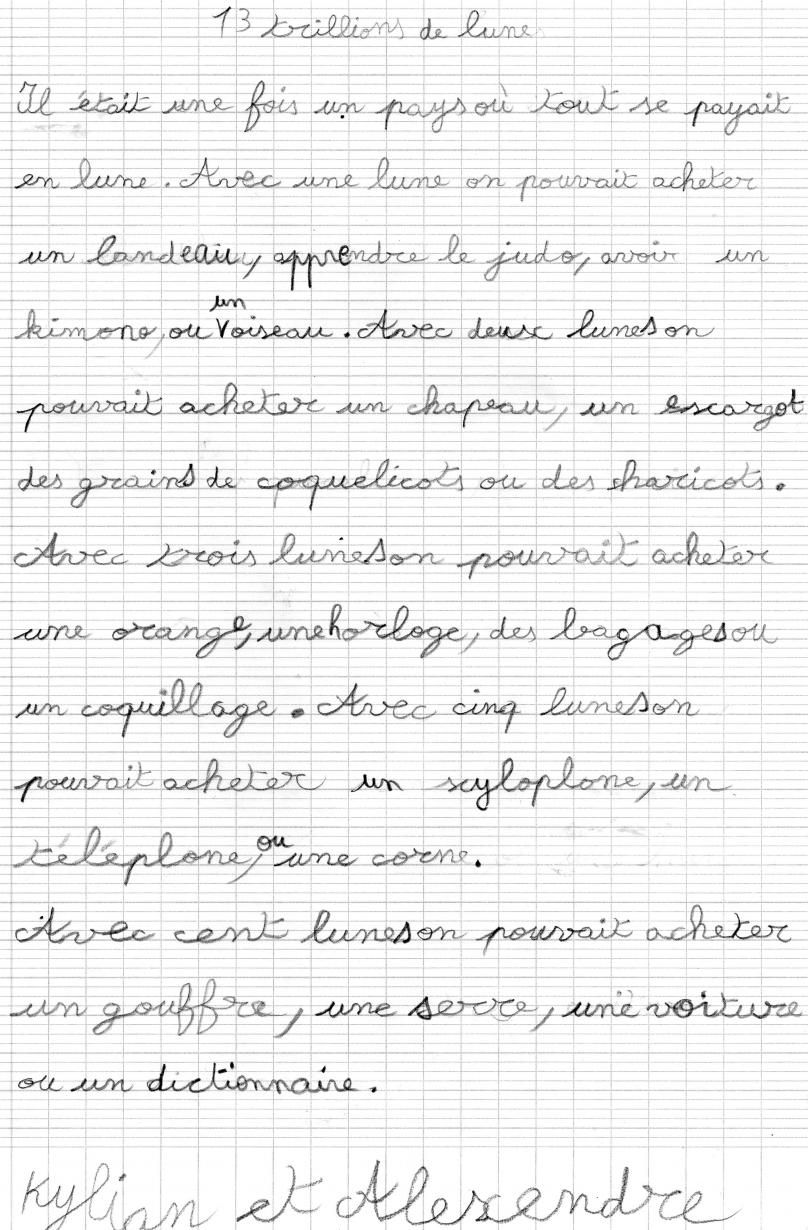 13 trillions de lune
Il était une fois un pays où tout se payait
en lune. Avec une lune on pouvait acheter
un landeau, apprendre le judo, avoir un
kimono, ou un voiseau. Avec deux lunes on
pouvait acheter un chapeau, un escargot
des grains de coquelicots ou des haricots.
Avec trois lunes on pouvait acheter
une orange, une horloge, des bagages ou
un coquillage. Avec cinq lunes on
pouvait acheter un scyloplone, un
téléplone, ou une corne.
Avec cent lunes on pouvait acheter
un gouffre, une serre, une voiture
ou un dictionnaire.
Kylian et Alexendre